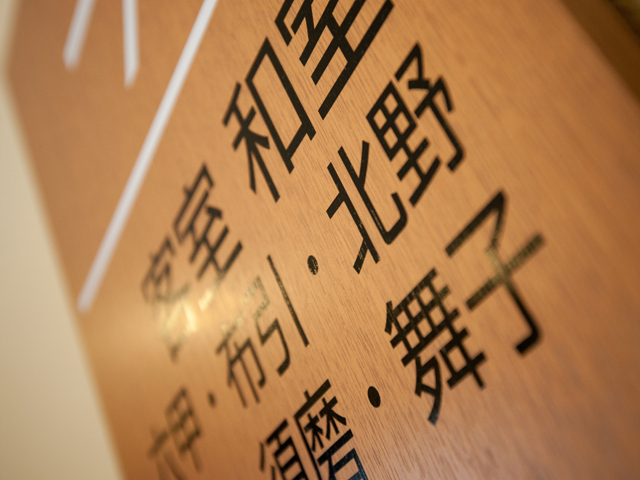 客室 和室
六甲・布引・北野
須磨・舞子